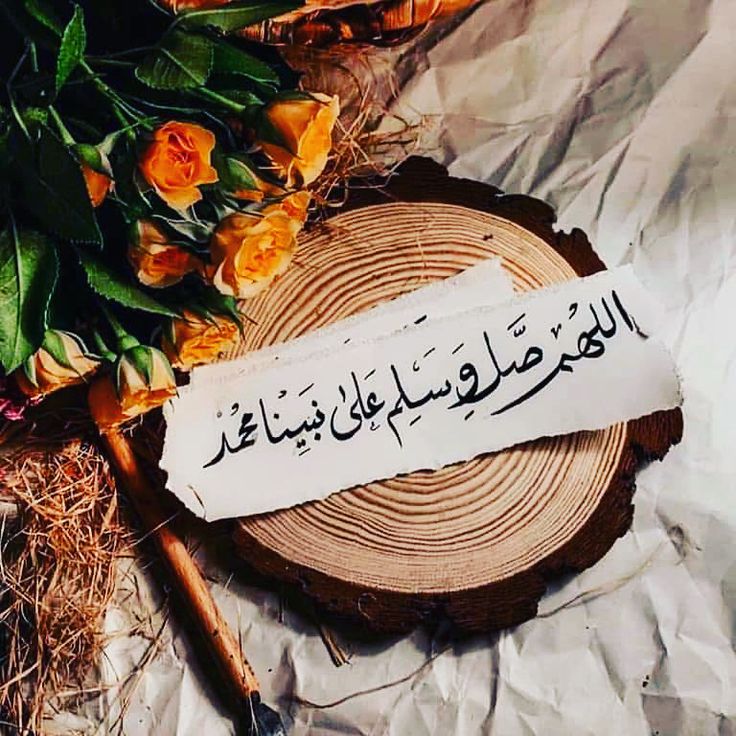 اللهم صَّل وَ سَلِم عَلىٰ نبَينْا محمد